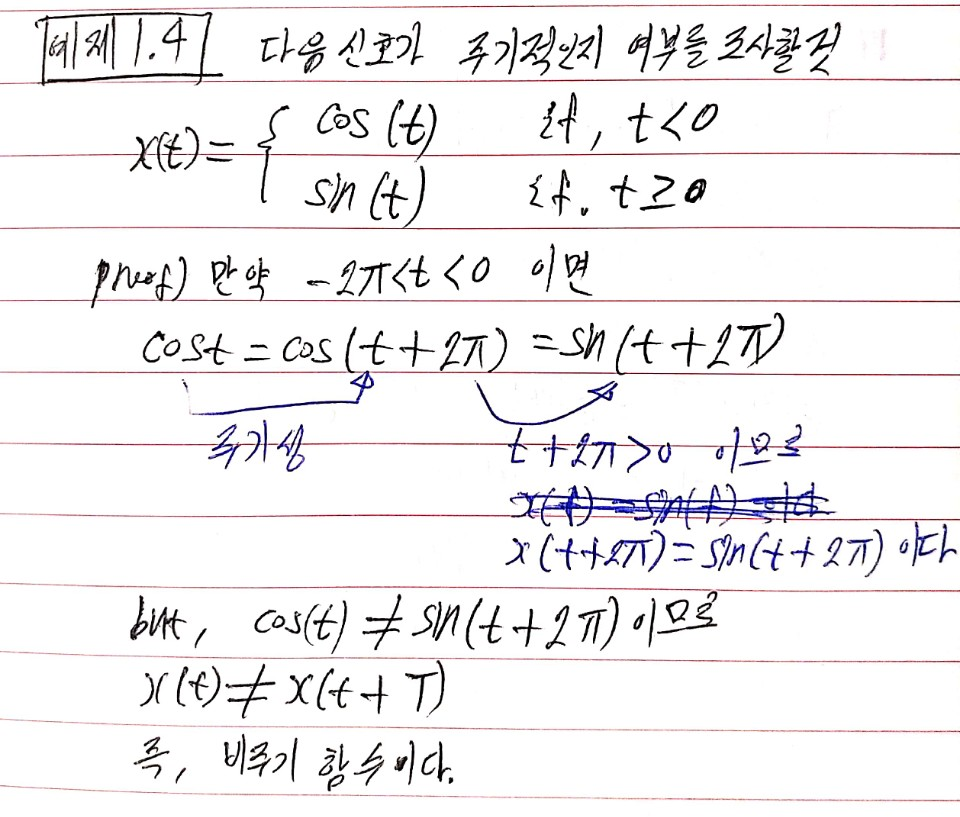 예제 1.4 다음 신호가 주기적인지 여부를 조사할것
x(t) = { cos(t) if, t<0
sin(t) if. t≥0
proof) 만약 -2π<t<0 이면
cost = cos(t+2π) = sin(t+2π)
주기성 t+2π>0 이므로
x(t)=sin(t) 이다
x(t+2π)=sin(t+2π) 이다
but, cos(t) ≠ sin(t+2π) 이므로
x(t) ≠ x(t+T)
즉, 비주기 함수이다.